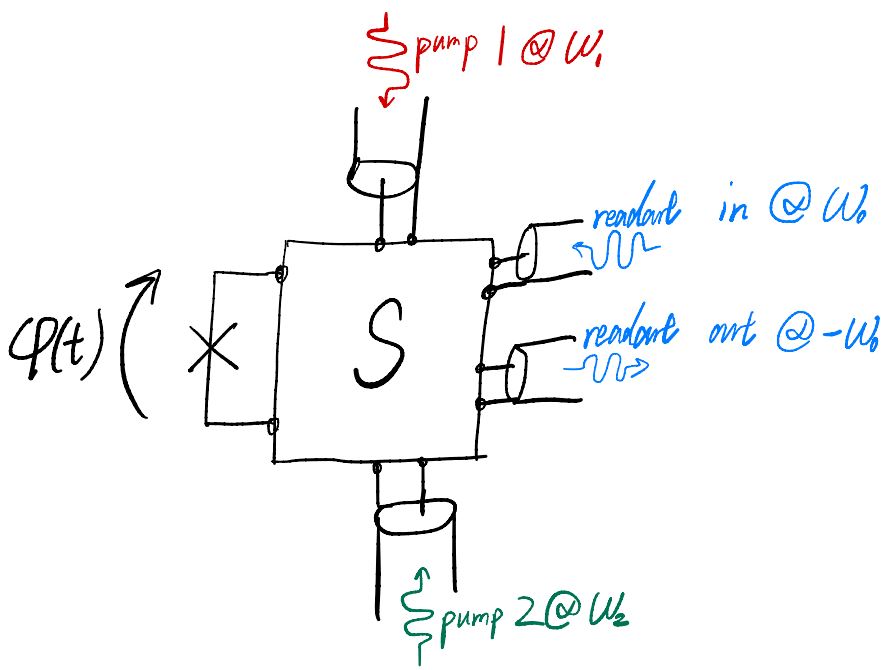 pump 1 @ ω₁
readout in @ ω₀
φ(t)
S
readout out @ -ω₀
pump 2 @ ω₂